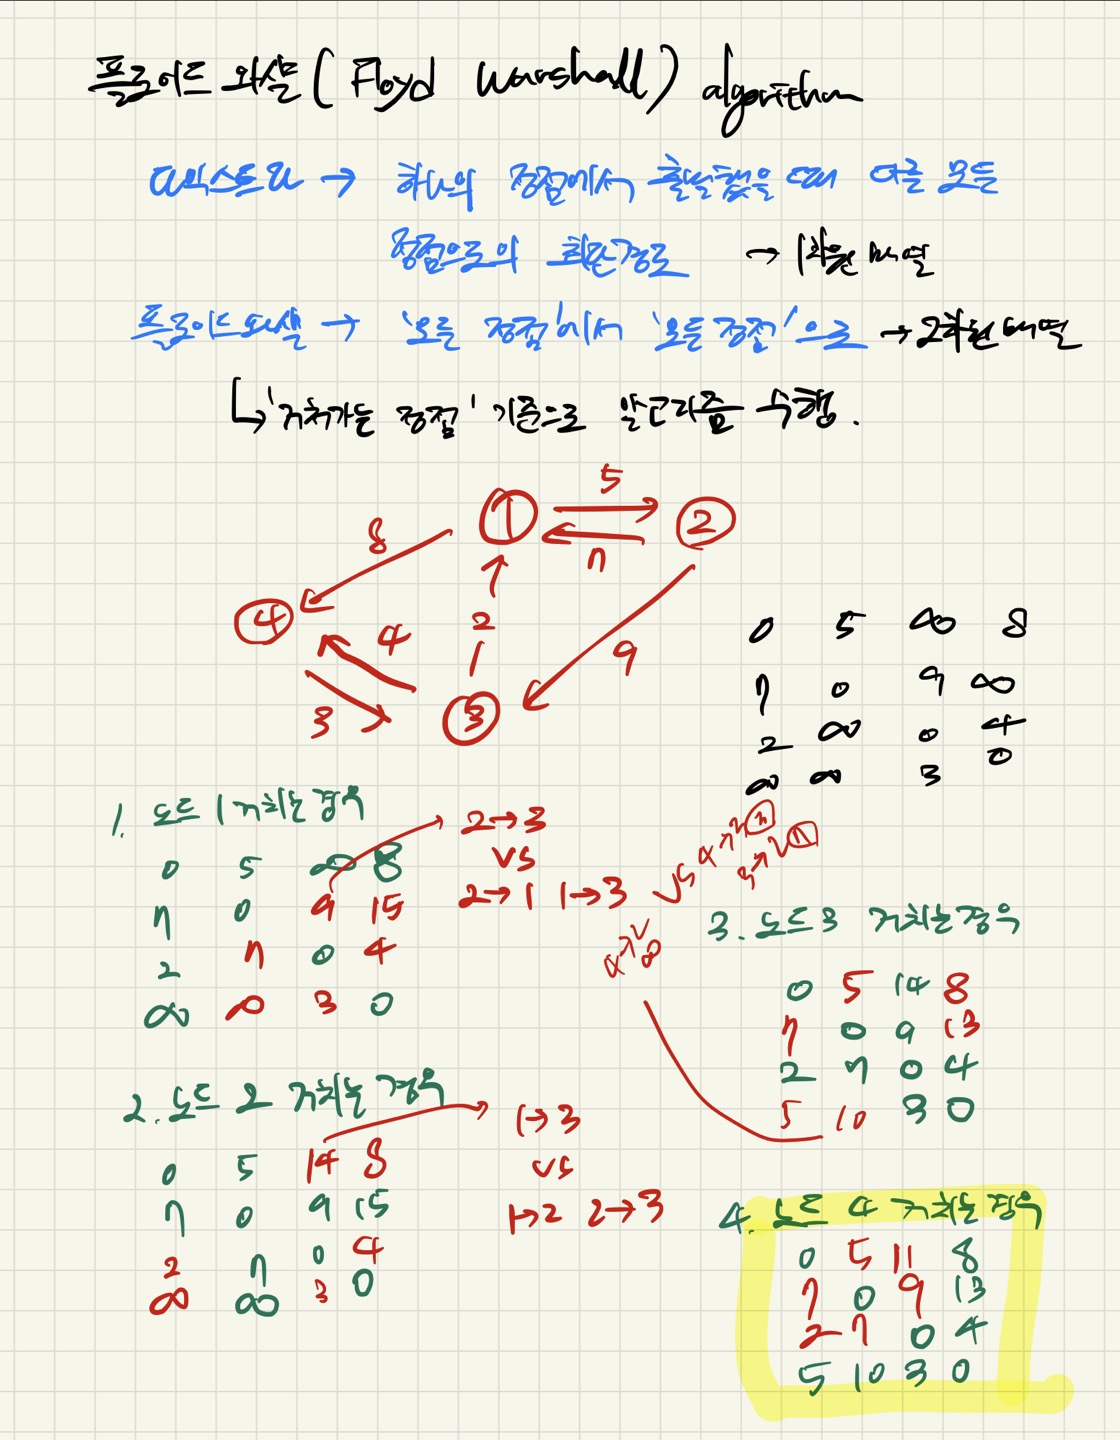 플로이드 와샬 (Floyd Warshall) algorithm
다익스트라 → 하나의 정점에서 출발했을 때 다른 모든
정점으로의 최단경로 → 1차원 배열
플로이드와샬 → '모든 정점'에서 '모든 정점'으로 → 2차원 배열
↳ '거쳐가는 정점' 기준으로 알고리즘 수행.
1 5 2
8 7
4 4 2 9
3 3
0 5 ∞ 8
7 0 9 ∞
2 ∞ 0 4
∞ ∞ 3 0
1. 노드 1 거치는 경우
0 5 ∞ 8
7 0 9 15
2 7 0 4
∞ ∞ 3 0
2→3
vs
2→1 1→3
2. 노드 2 거치는 경우
0 5 14 8
7 0 9 15
2 7 0 4
∞ ∞ 3 0
1→3
vs
1→2 2→3
3. 노드 3 거치는 경우
0 5 14 8
7 0 9 13
2 7 0 4
5 10 3 0
4→2
∞
vs 4→3 3
3→2 7
4. 노드 4 거치는 경우
0 5 11 8
7 0 9 13
2 7 0 4
5 10 3 0